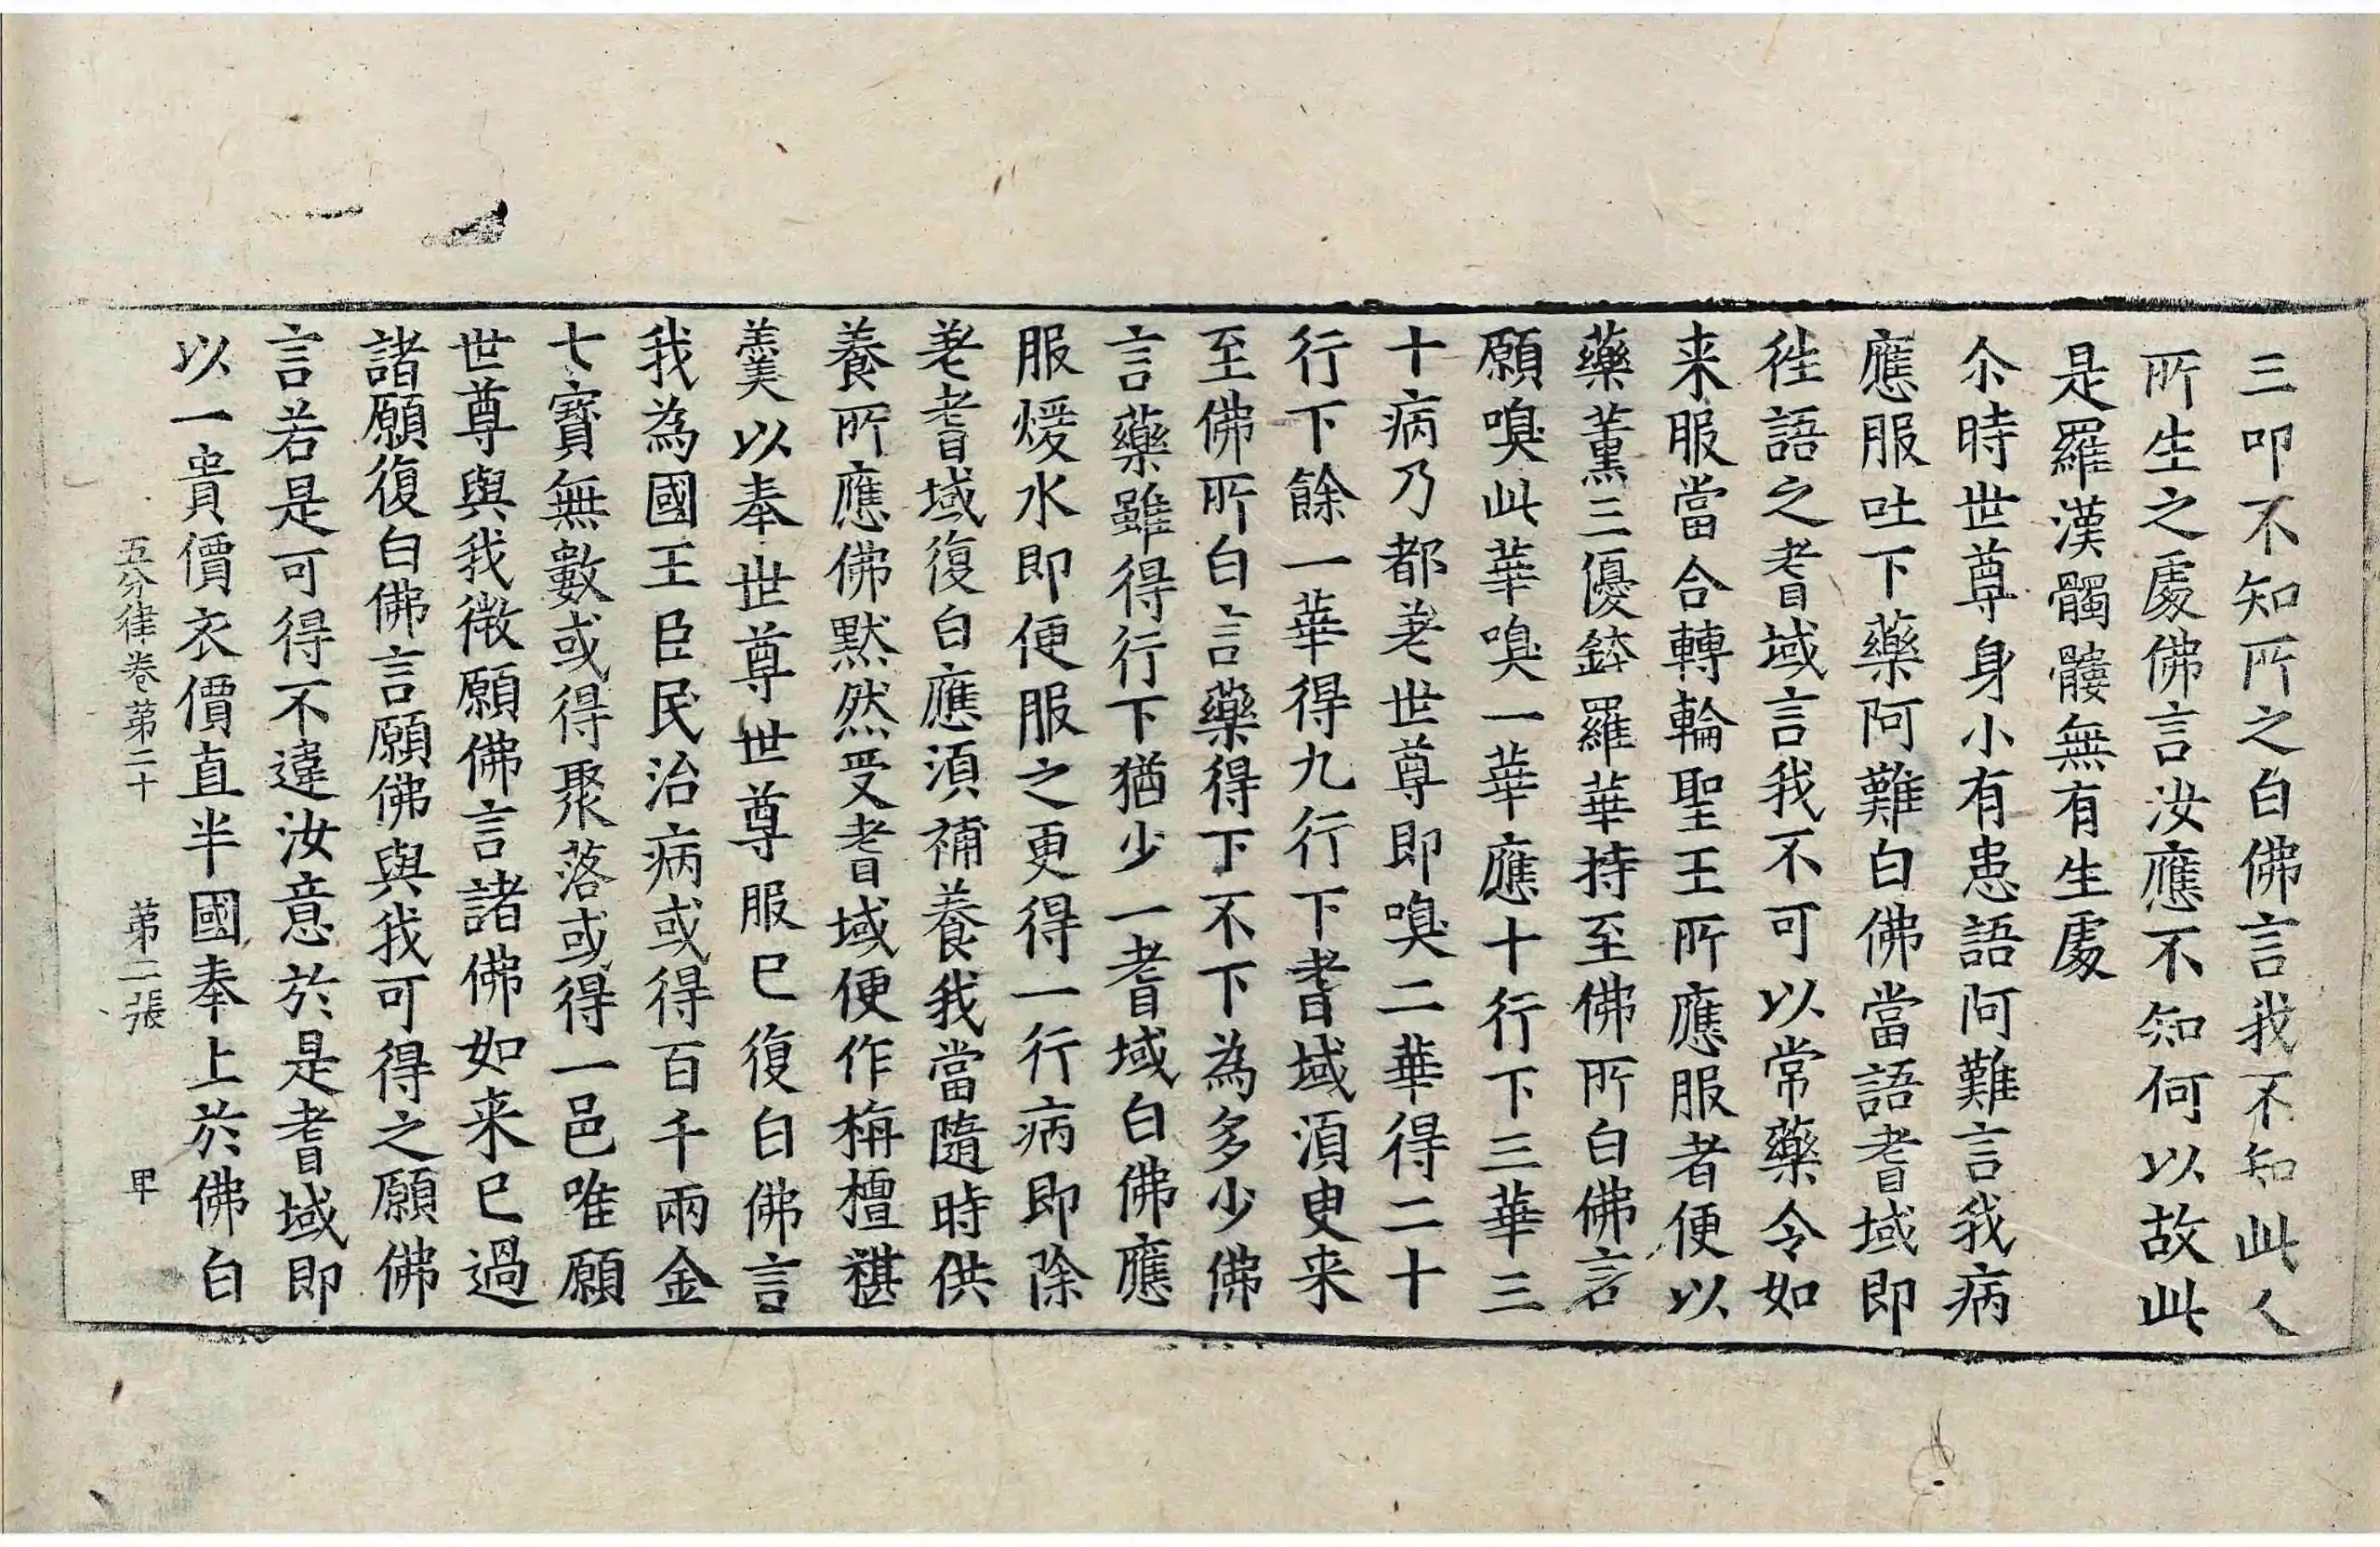 三叩不知所之白佛言我不知此人
所生之處佛言汝應不知何以故此
是羅漢髑髏無有生處
尒時世尊身小有患語阿難言我病
應服吐下藥阿難白佛當語耆域即
徃語之耆域言我不可以常藥令如
来服當合轉輪聖王所應服者便以
藥薰三優鉢羅華持至佛所白佛言
願嗅此華嗅一華應十行下三華三
十病乃都差世尊即嗅二華得二十
行下餘一華得九行下耆域湏臾来
至佛所白言藥得下不下為多少佛
言藥雖得行下猶少一耆域白佛應
服煖水即便服之更得一行病即除
差耆域復白應湏補養我當隨時供
養所應佛默然受耆域便作栴檀糂
羹以奉世尊世尊服已復白佛言
我為國王臣民治病或得百千兩金
七寳無數或得聚落或得一邑唯願
世尊與我微願佛言諸佛如来已過
諸願復白佛言願佛與我可得之願佛
言若是可得不違汝意於是耆域即
以一貴價衣價直半國奉上於佛白
五分律卷第二十　第二張　甲